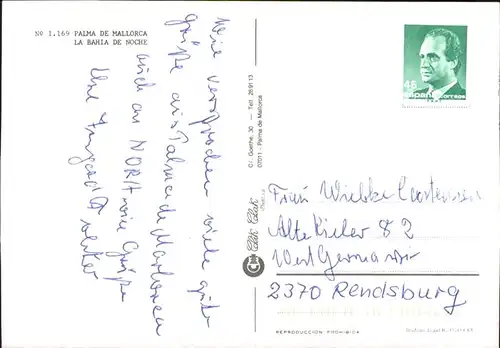 Nº 1.169 PALMA DE MALLORCA
LA BAHIA DE NOCHE
Wie versprochen viele gute
Grüße aus Palma de Mallorca
auch an NORA viele Grüße
Ihre
C/. Goethe, 30 — Tel! 28 91 13
07011 - Palma de Mallorca
Click Clak
46
España correos
Frau Wiebke
Alte Kieler 82
West Germany
2370 Rendsburg
REPRODUCCION PROHIBIDA